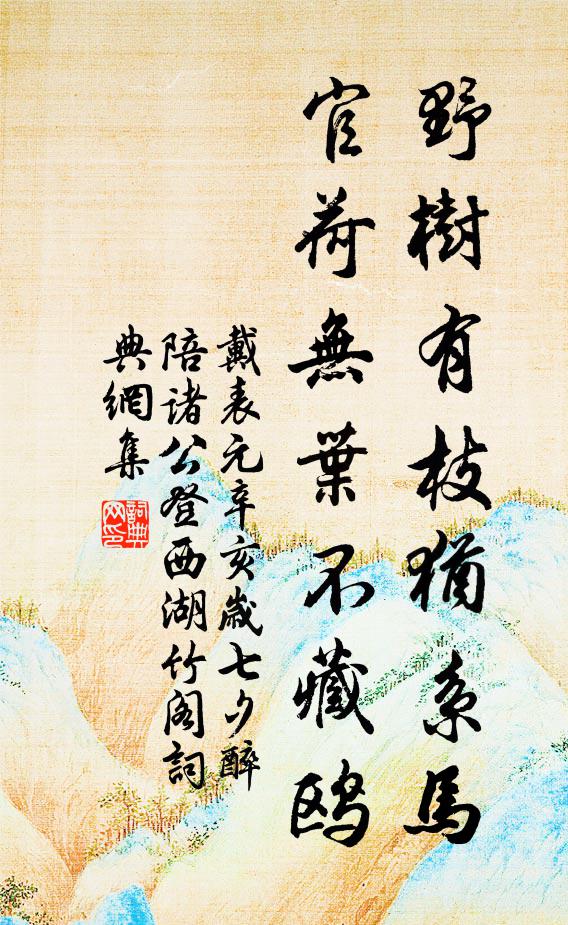 野樹有枝猶系馬
官荷無葉不藏鸥
戴表元辛亥歲七夕醉
陪诸公登西湖竹阁詞
典網集
詞典网印